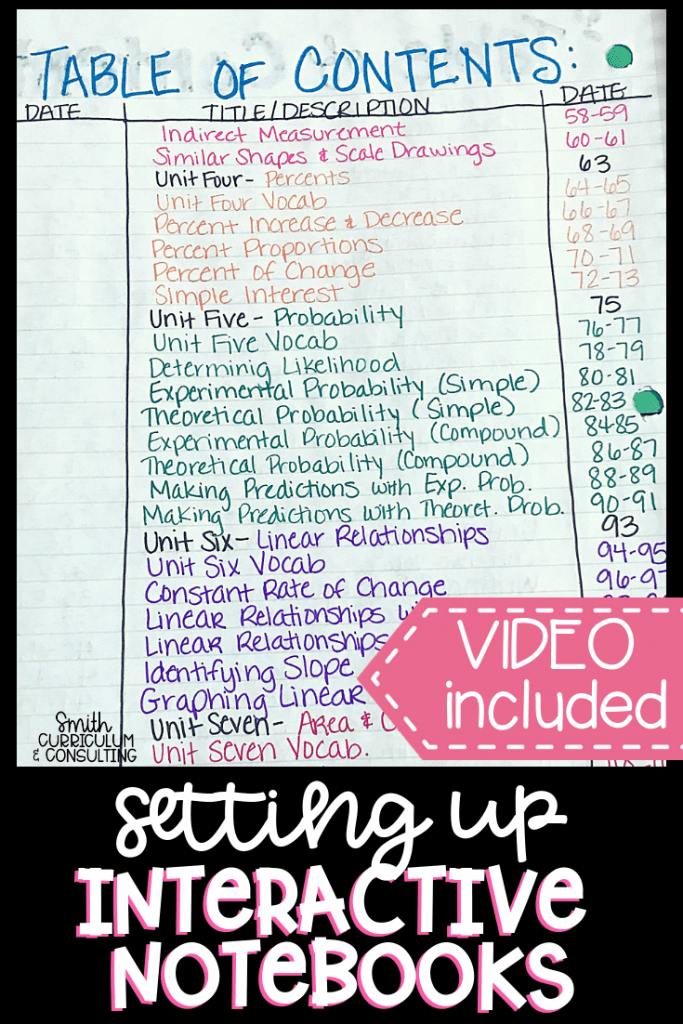 TABLE OF CONTENTS:
DATE TITLE/DESCRIPTION DATE
Indirect Measurement 58-59
Similar Shapes & Scale Drawings 60-61
Unit Four- Percents 63
Unit Four Vocab 64-65
Percent Increase & Decrease 66-67
Percent Proportions 68-69
Percent of Change 70-71
Simple Interest 72-73
Unit Five- Probability 75
Unit Five Vocab 76-77
Determinig Likelihood 78-79
Experimental Probability (Simple) 80-81
Theoretical Probability (Simple) 82-83
Experimental Probability (Compound) 84-85
Theoretical Probability (Compound) 86-87
Making Predictions with Exp. Prob. 88-89
Making Predictions with Theoret. Prob. 90-91
Unit Six- Linear Relationships 93
Unit Six Vocab 94-95
Constant Rate of Change
Linear Relationships
Linear Relationships
Identifying Slope
Graphing Linear
Unit Seven- Area &
Unit Seven Vocab.
VIDEO
included
Smith
CURRICULUM
& CONSULTING
setting up
INTERACTIVE
NOTEBOOKS